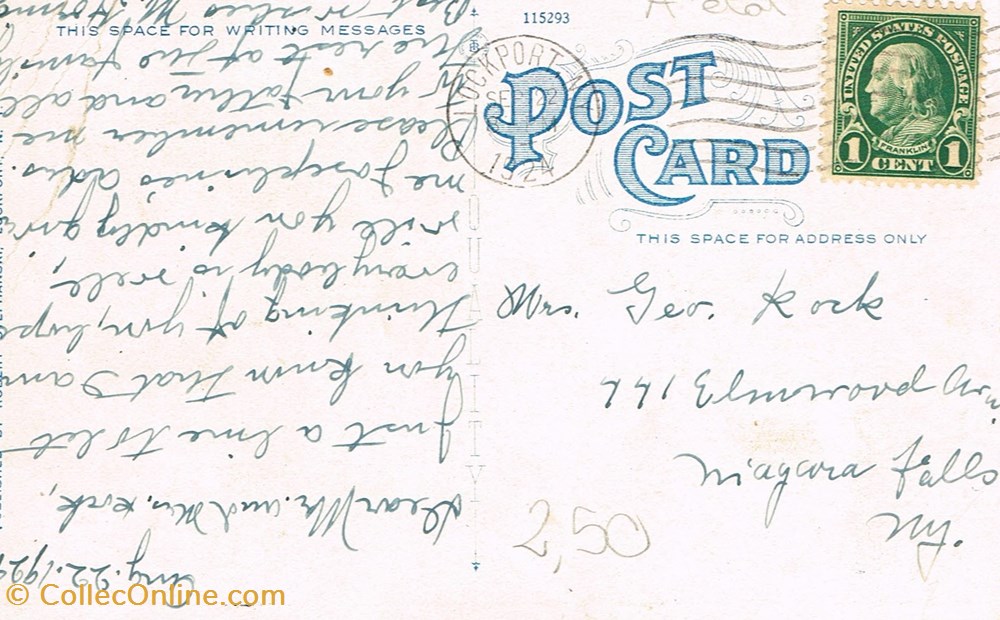 THIS SPACE FOR WRITING MESSAGES
115293
POST
CARD
THIS SPACE FOR ADDRESS ONLY
LOCKPORT
22
1924
UNITED STATES POSTAGE
FRANKLIN
1 CENT 1
Mrs. Geo. Kock
Elmwood Av.
Niagara Falls
N.Y.
2,50
QUALITY
Aug. 22. 192
Dear Mr. and Mrs. Kock,
Just a line to let
you know that I am
thinking of you, hope
everybody is well,
will you kindly give
me Josephines adds.
Please remember me
to your father and all
the rest of the family
Best wishes M.
© CollecOnline.com